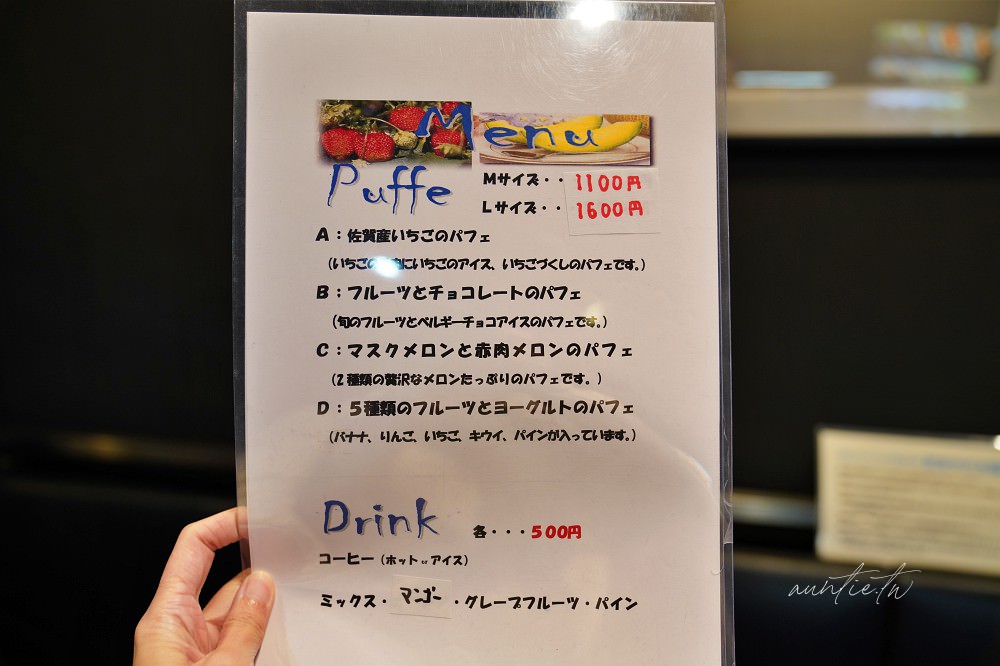 Menu
Puffe
Mサイズ・・1100円
Lサイズ・・1600円
A：佐賀産いちごのパフェ
(いちごの にいちごのアイス、いちごづくしのパフェです。)
B：フルーツとチョコレートのパフェ
(旬のフルーツとベルギーチョコアイスのパフェです。)
C：マスクメロンと赤肉メロンのパフェ
(2種類の贅沢なメロンたっぷりのパフェです。)
D：5種類のフルーツとヨーグルトのパフェ
(バナナ、りんご、いちご、キウイ、パインが入っています。)
Drink 各・・・500円
コーヒー(ホット or アイス)
ミックス・マンゴー・グレープフルーツ・パイン
auntie.tw